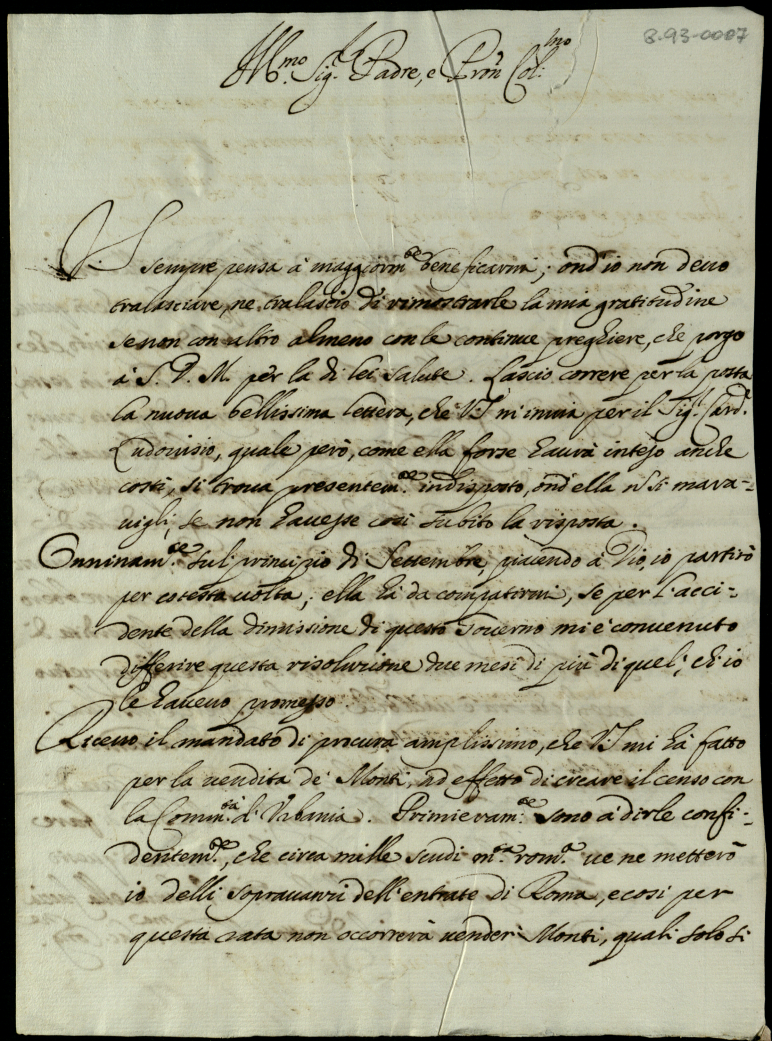 8-93-0007
Ill.mo Sig.r Padre, e Pron Col.mo
V.S. sempre pensa à maggiorm.te beneficarmi; ond'io non deuo
tralasciare, ne tralascio di rimostrarle la mia gratitudine
se non con altro almeno con le continue preghiere, che porgo
à S. D. M. per la di lei salute. Lascio correre per la posta
la nuoua bellissima lettera, che VS m'inuia per il Sig.r Card.
Ludouisio, quale però, come ella forse haurà inteso anche
costì, si troua presentem.te indisposto, ond'ella nō si mara-
uigli, se non hauesse così subito la risposta.
Onninam.te sul principio di Settembre, piacendo à Dio, io partirò
per cotesta uolta; ella hà da compatirmi, se per l'acci-
dente della dimissione di questo Gouerno mi è conuenuto
differire questa risoluzione due mesi di più di quel', ch'io
le haueuo promesso.
Riceuo il mandato di procura amplissimo, che VS mi hà fatto
per la uendita de' Monti, ad effetto di creare il censo con
la Comm.tà d'Vrbania. Primieram.te sono à dirle confi-
dentem.te, che circa mille scudi m.ta rom.a ue ne metterò
io delli soprauanzi dell'entrate di Roma, e così per
questa rata non occorrerà uender Monti, quali solo si